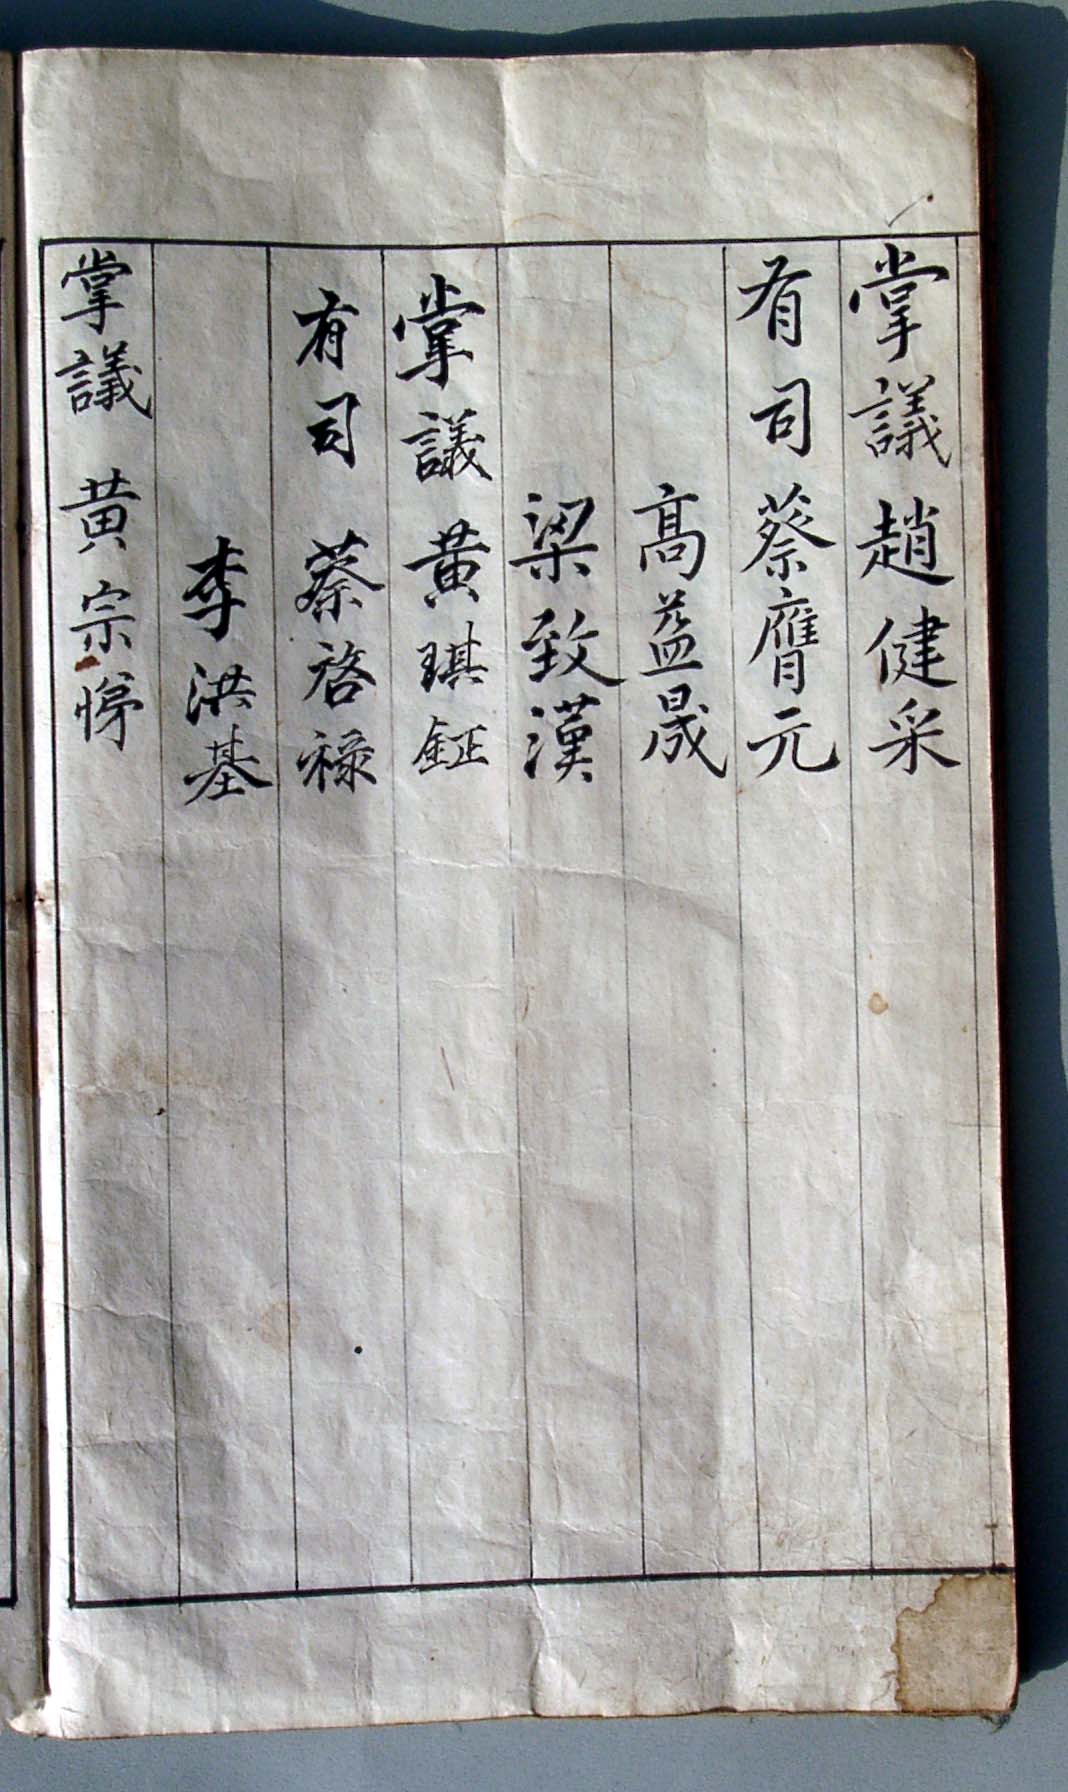 掌議 趙健采
有司 蔡膺元
高益晟
梁致漢
掌議 黃琪鉦
有司 蔡啓祿
李洪基
掌議 黃宗悌